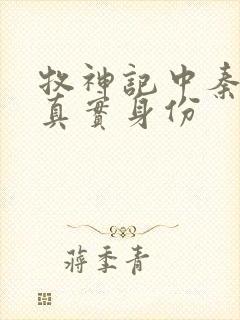 牧神記中秦
真實身份
蔣季青